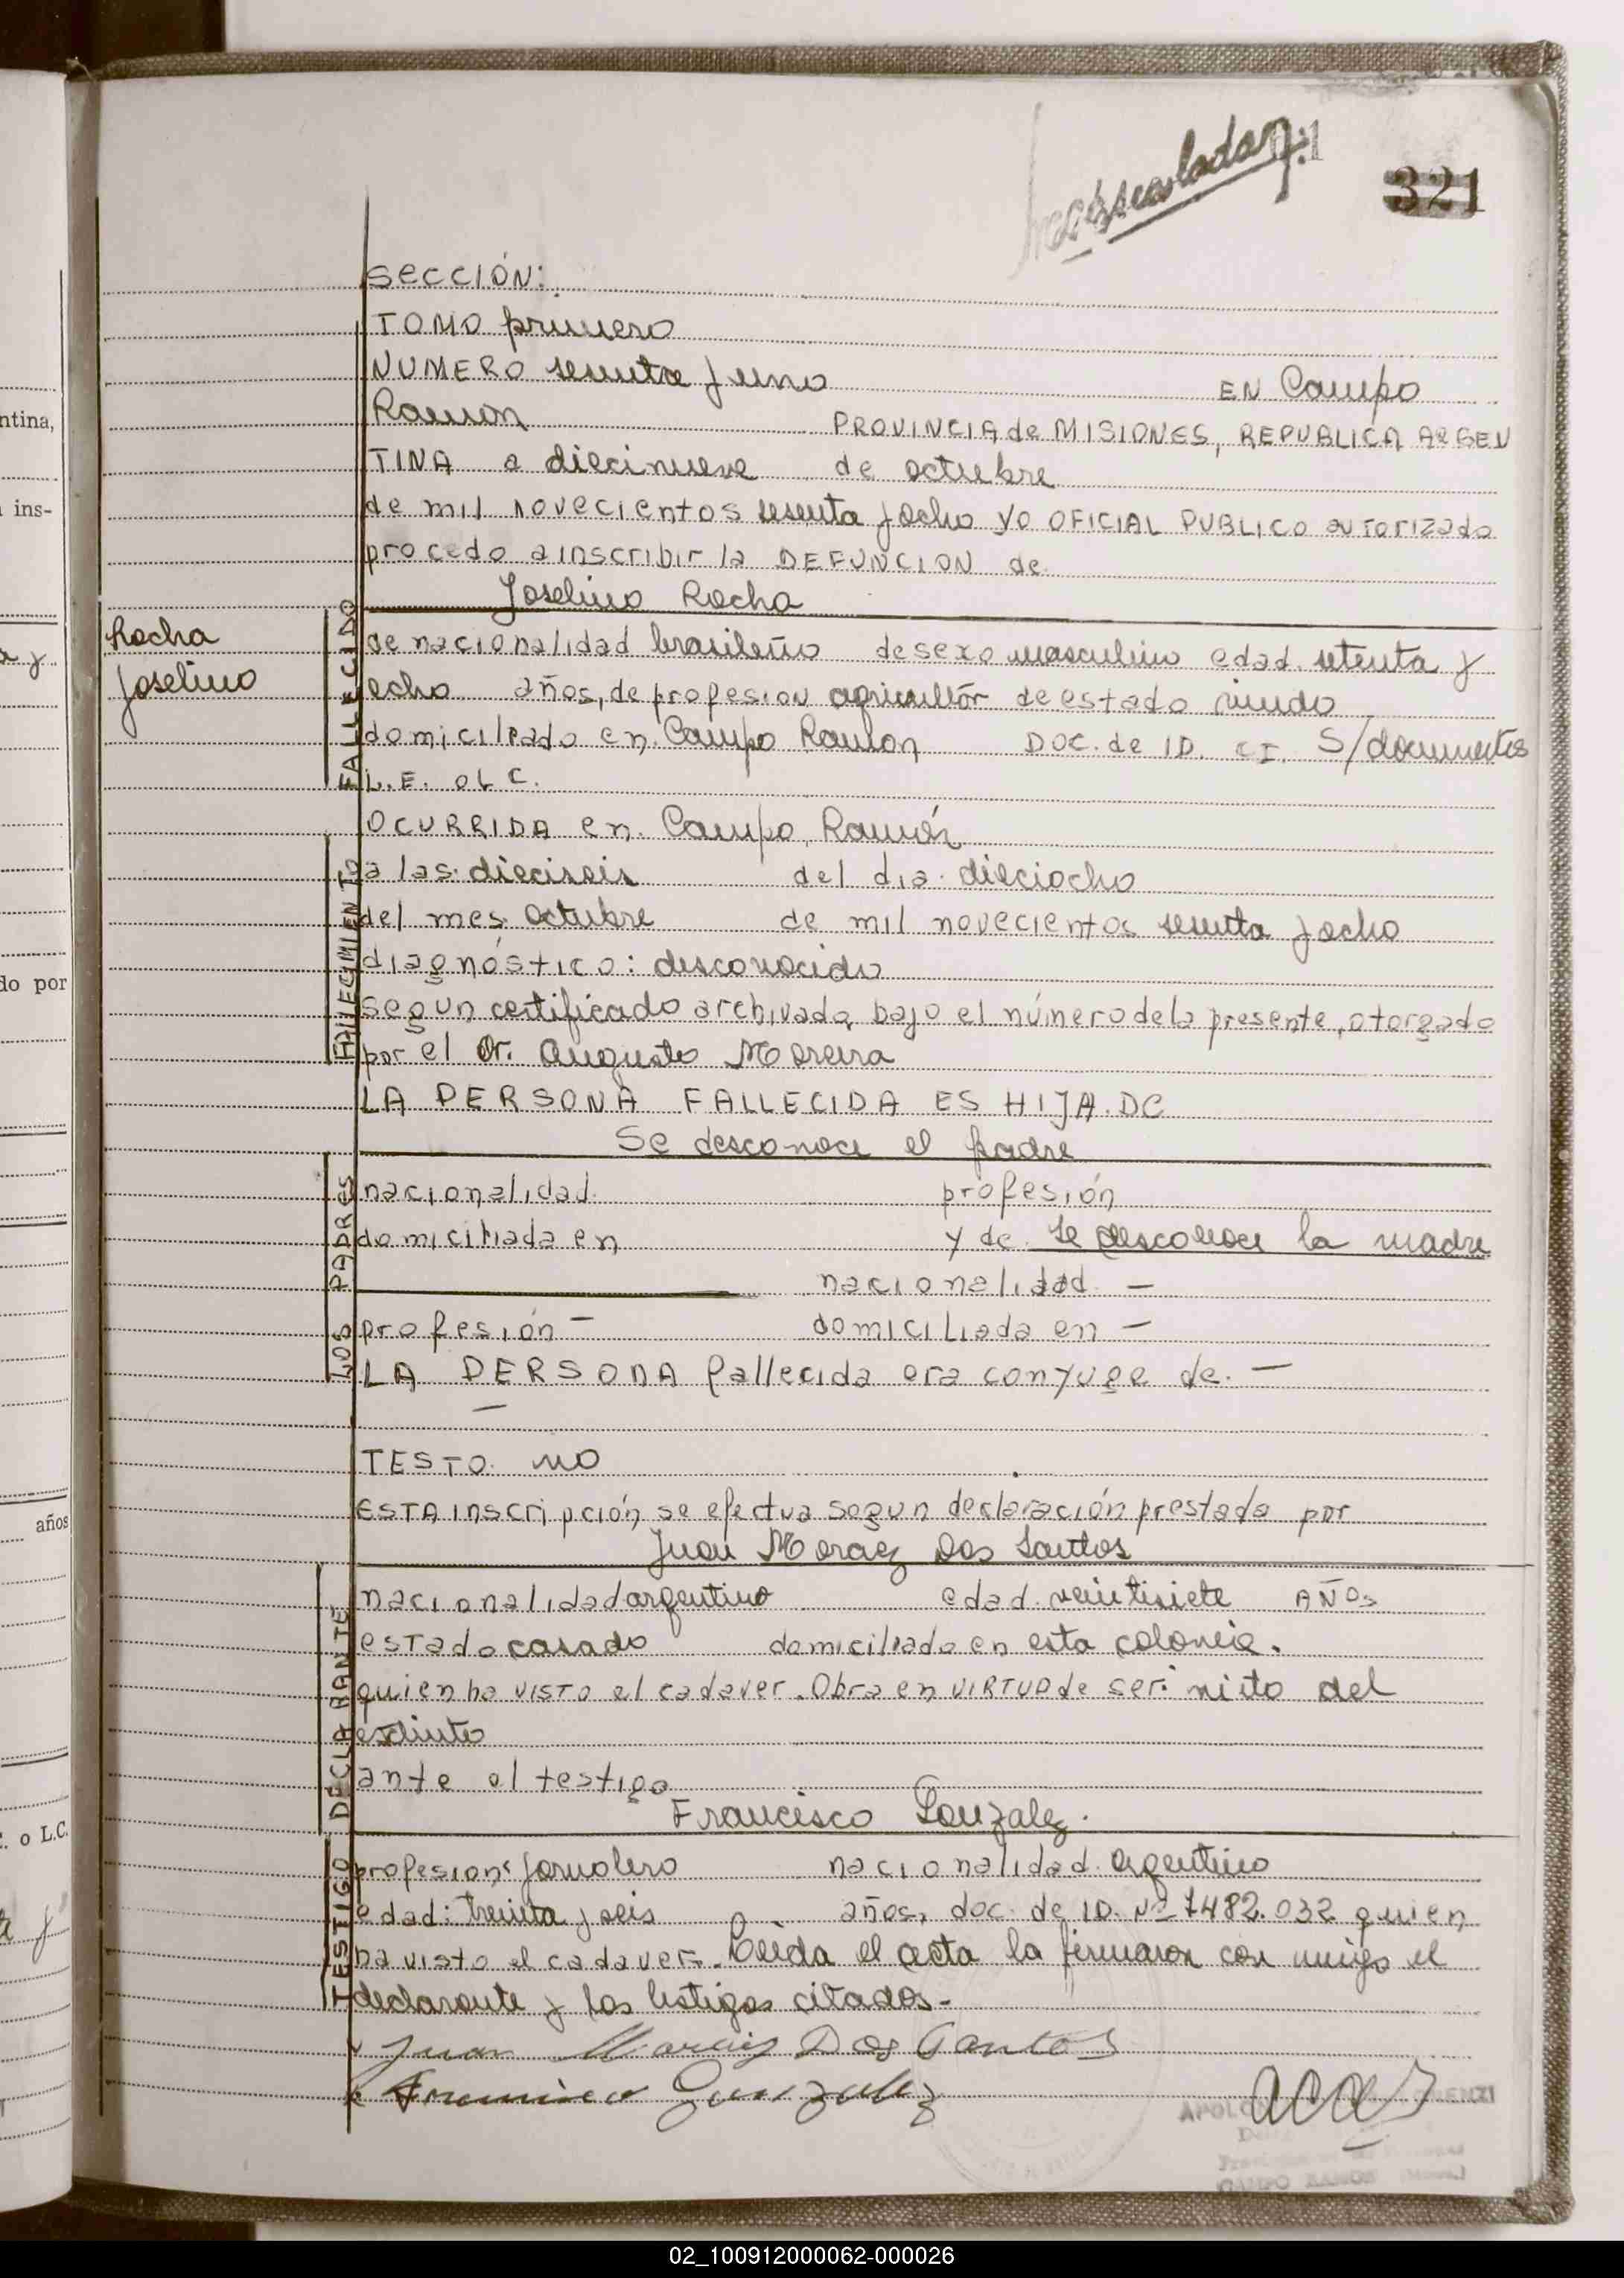 321
SECCIÓN:
TOMO primero
NUMERO sesenta y uno EN Campo
Ramon PROVINCIA de MISIONES, REPUBLICA ARGEN
TINA a diecinueve de octubre
de mil novecientos sesenta y ocho yo OFICIAL PUBLICO autorizado
procedo a inscribir la DEFUNCION de
Joselino Rocha
Rocha
Joselino
FALLECIDO
de nacionalidad brasileño de sexo masculino edad setenta y
ocho años, de profesion agricultor de estado viudo
domiciliado en Campo Ramon DOC. de ID. CI. S/documentos
L.E. o L C.
OCURRIDA en Campo Ramón
FALLECIMIENTO
a las dieciseis del dia dieciocho
del mes Octubre de mil novecientos sesenta y ocho
diagnóstico: desconocido
segun certificado archivado bajo el número de la presente, otorgado
por el Dr. Augusto Moreira
LA PERSONA FALLECIDA ES HIJA DE
Se desconoce el padre
LOS PADRES
nacionalidad profesión
domiciliada en y de se desconoce la madre
nacionalidad —
profesión — domiciliada en —
LA PERSONA fallecida era conyuge de —
—
TESTO no
ESTA inscripción se efectua segun declaración prestada por
Juan Moraez Dos Santos
DECLARANTE
nacionalidad argentino edad veintisiete AÑOS
estado casado domiciliado en esta colonia.
quien ha VISTO el cadaver. Obra en VIRTUD de ser: nieto del
extinto
ante el testigo
Francisco Gonzalez.
TESTIGO
profesion: jornalero nacionalidad argentino
edad: treinta y seis años, doc. de ID. Nº 7482.032 quien
ha visto el cadaver. Leida el acta la firmaron con migo el
declarante y los testigos citados.-
Juan Moraiz Dos Santos
Francisco Gonzalez
CAMPO RAMON
ntina,
ins-
do por
años
o L.C.
02_100912000062-000026